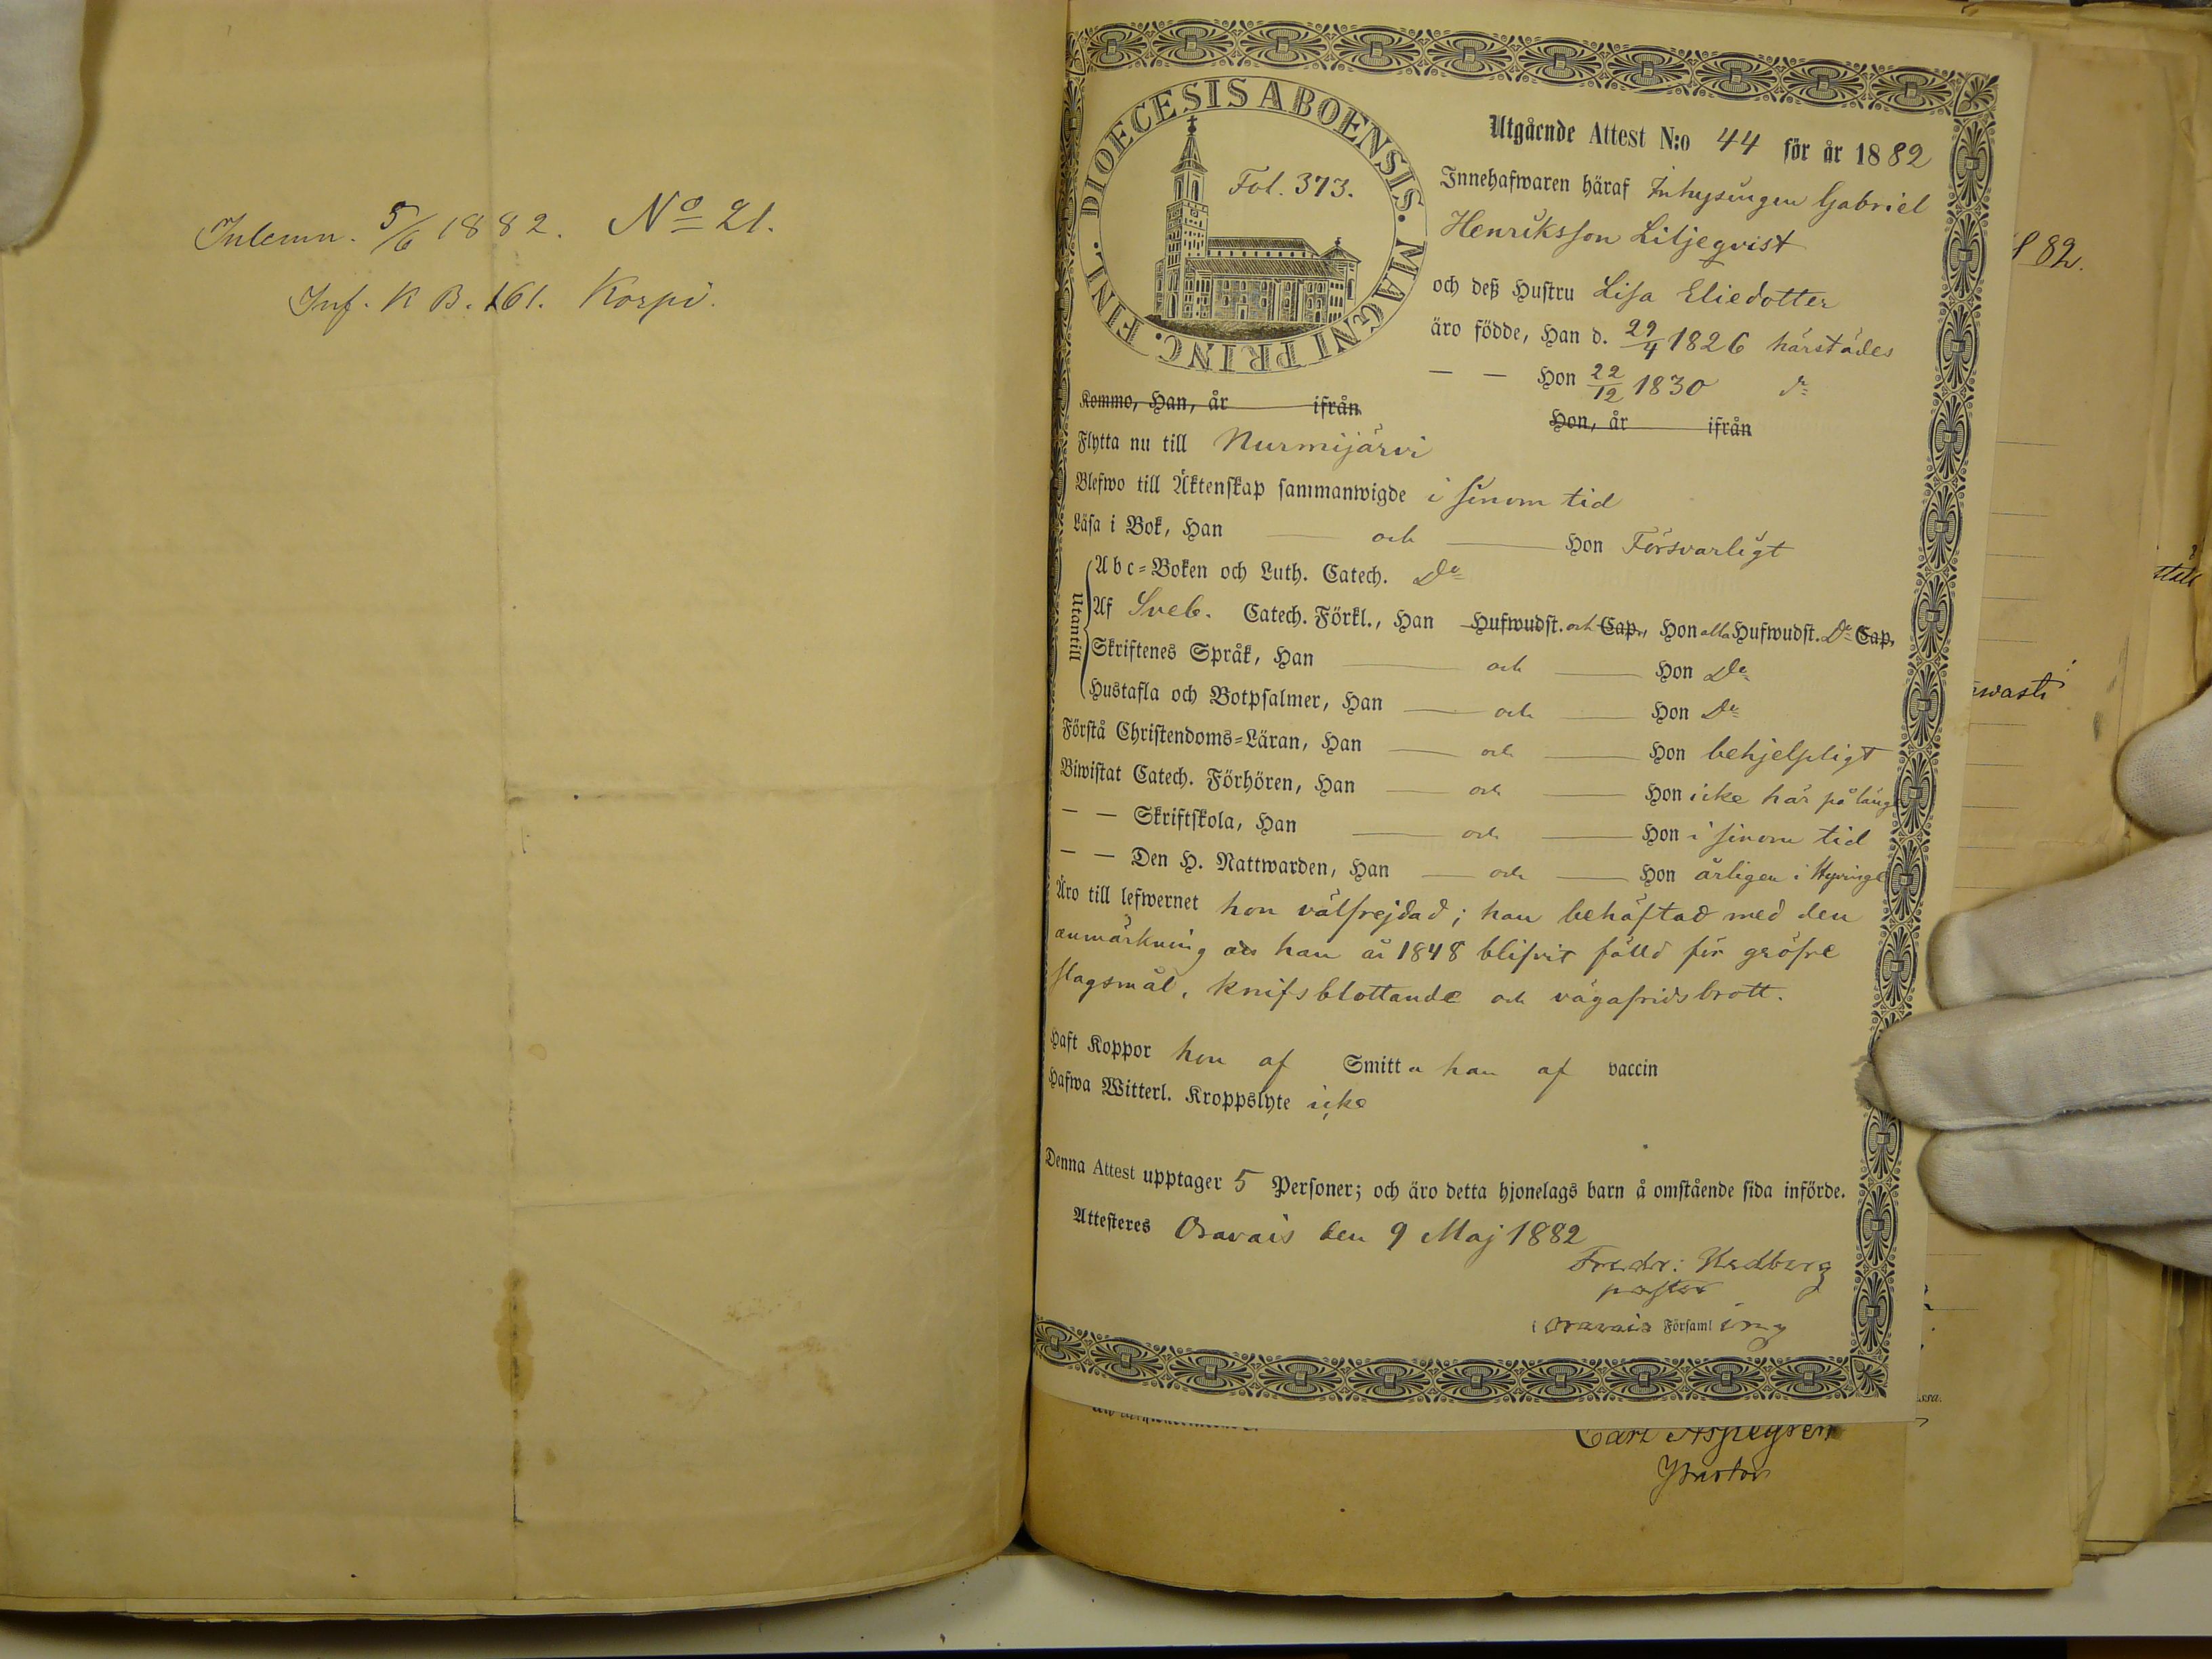 Inlemn. 5/6 1882. No 21.
Inf. K B. 161. Korpi.
DIOECESIS ABOENSIS. MAGNI PRINC. FINL.
Fol. 373.
Utgående Attest N:o 44 för år 1882
Innehafwaren häraf Inhysingen Gabriel
Henriksson Liljeqvist
och deß Hustru Lisa Eliedotter
äro födde, Han d. 29/4 1826 härstädes
— — Hon 22/12 1830 do
Kommo, Han, år ifrån
Hon, år ifrån
Flytta nu till Nurmijärvi
Blefwo till Äktenskap sammanwigde i sinom tid
Läsa i Bok, Han — och — Hon Försvarligt
Utantill
Abc-Boken och Luth. Catech. Do
Af Sveb. Catech. Förkl., Han Hufwudst. och Cap., Hon alla Hufwudst. Do Cap.
Skriftenes Språk, Han — och — Hon Do
Hustafla och Botpsalmer, Han — och — Hon Do
Förstå Christendoms-Läran, Han — och — Hon behjelpligt
Biwistat Catech. Förhören, Han — och — Hon icke här på länge
— — Skriftskola, Han — och — Hon i sinom tid
— — Den H. Nattwarden, Han — och — Hon årligen i
Äro till lefwernet hon välfrejdad; han behäftad med den
anmärkning att han år 1848 blifvit fälld för gröfre
slagsmål, knifsblottande och vägafridsbrott.
Haft Koppor hon af Smitta han af vaccin
Hafwa Witterl. Kroppslyte icke
Denna Attest upptager 5 Personer; och äro detta hjonelags barn å omstående sida införde.
Attesteres Oravais den 9 Maj 1882
Fredr: Hedberg
pastor
i Oravais Församling
1882.
Carl Aspegren
Pastor